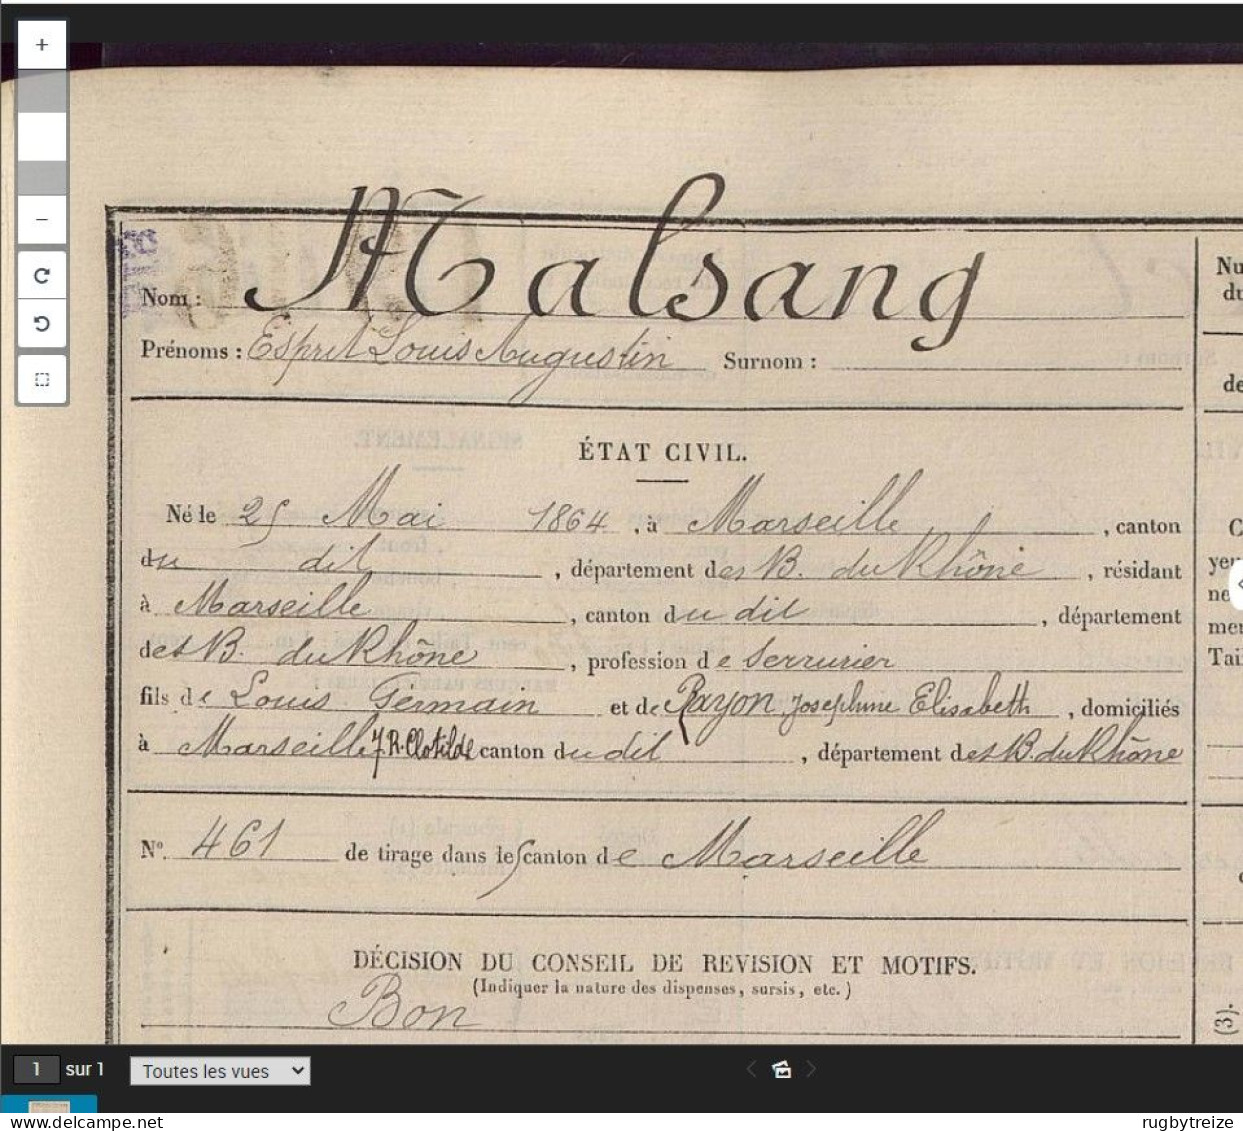 Malsang
Nom :
Prénoms : Esprit Louis Augustin Surnom :
ÉTAT CIVIL.
Né le 25 Mai 1864 , à Marseille , canton
du dit , département des B. du Rhône , résidant
à Marseille , canton du dit , département
des B. du Rhône , profession de Serrurier
fils de Louis Germain et de Rayon Josephine Elisabeth , domiciliés
à Marseille 7 R. Clotilde canton du dit , département des B. du Rhône
N° 461 de tirage dans le 5 canton de Marseille
DÉCISION DU CONSEIL DE REVISION ET MOTIFS.
(Indiquer la nature des dispenses, sursis, etc.)
Bon
Nu
du
de
C
yeu
ne
men
Tail
(3).
1 sur 1 Toutes les vues
www.delcampe.net rugbytreize